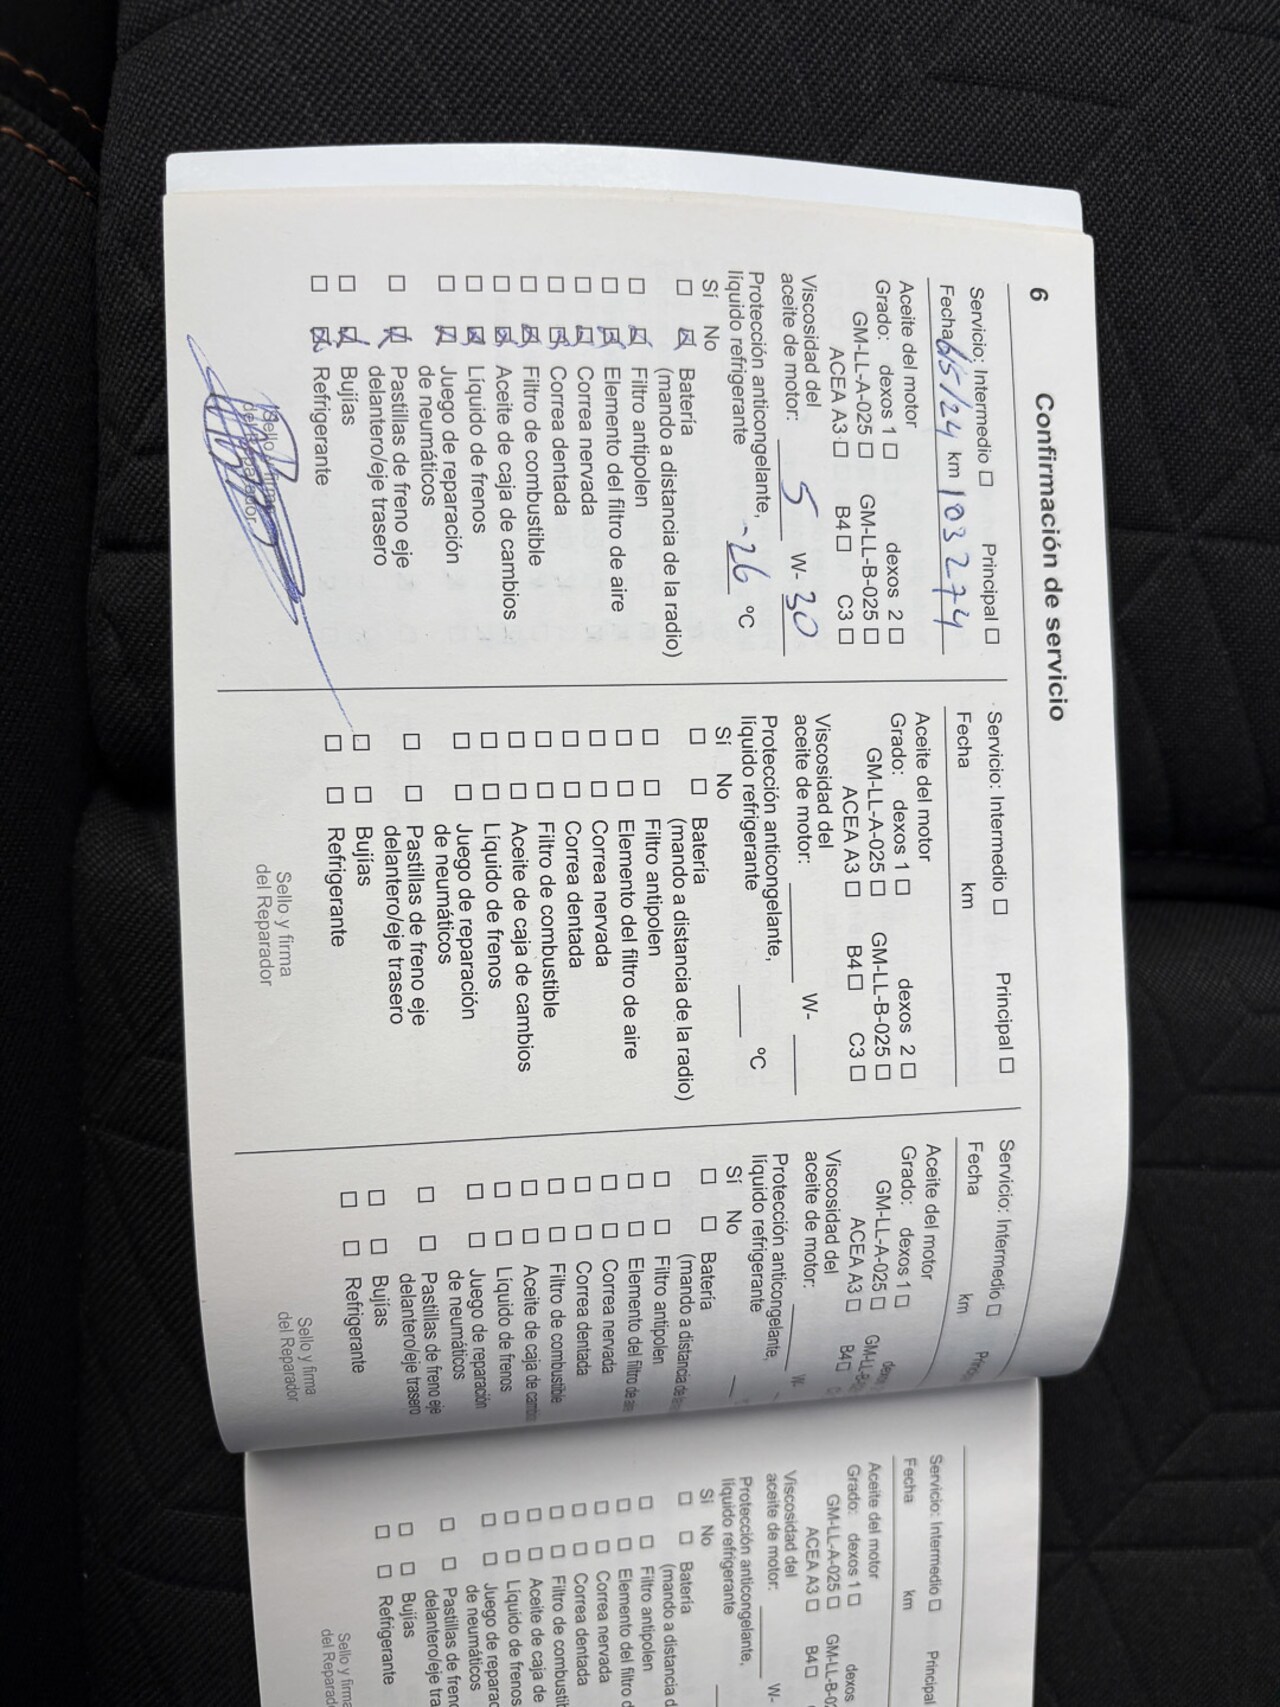 6 Confirmación de servicio
Servicio: Intermedio ☐ Principal ☐
Fecha 6/5/24 km 103274
Aceite del motor
Grado: dexos 1 ☐ dexos 2 ☐
GM-LL-A-025 ☐ GM-LL-B-025 ☐
ACEA A3 ☐ B4 ☐ C3 ☐
Viscosidad del
aceite de motor: 5 W- 30
Protección anticongelante,
líquido refrigerante -26 °C
Sí No
☐ ☒ Batería
(mando a distancia de la radio)
☐ ☒ Filtro antipolen
☐ ☒ Elemento del filtro de aire
☐ ☒ Correa nervada
☐ ☒ Correa dentada
☐ ☒ Filtro de combustible
☐ ☒ Aceite de caja de cambios
☐ ☒ Líquido de frenos
☐ ☒ Juego de reparación
de neumáticos
☐ ☒ Pastillas de freno eje
delantero/eje trasero
☐ ☒ Bujías
☐ ☒ Refrigerante
Sello y firma
del Reparador
Servicio: Intermedio ☐ Principal ☐
Fecha km
Aceite del motor
Grado: dexos 1 ☐ dexos 2 ☐
GM-LL-A-025 ☐ GM-LL-B-025 ☐
ACEA A3 ☐ B4 ☐ C3 ☐
Viscosidad del
aceite de motor: W-
Protección anticongelante,
líquido refrigerante °C
Sí No
☐ ☐ Batería
(mando a distancia de la radio)
☐ ☐ Filtro antipolen
☐ ☐ Elemento del filtro de aire
☐ ☐ Correa nervada
☐ ☐ Correa dentada
☐ ☐ Filtro de combustible
☐ ☐ Aceite de caja de cambios
☐ ☐ Líquido de frenos
☐ ☐ Juego de reparación
de neumáticos
☐ ☐ Pastillas de freno eje
delantero/eje trasero
☐ ☐ Bujías
☐ ☐ Refrigerante
Sello y firma
del Reparador
Servicio: Intermedio ☐
Fecha km
Aceite del motor
Grado: dexos 1 ☐
GM-LL-A-025 ☐
ACEA A3 ☐ B4 ☐
Viscosidad del
aceite de motor: W-
Protección anticongelante,
líquido refrigerante
Sí No
☐ ☐ Batería
(mando a distancia de la
☐ ☐ Filtro antipolen
☐ ☐ Elemento del filtro de aire
☐ ☐ Correa nervada
☐ ☐ Correa dentada
☐ ☐ Filtro de combustible
☐ ☐ Aceite de caja de
☐ ☐ Líquido de frenos
☐ ☐ Juego de reparación
de neumáticos
☐ ☐ Pastillas de freno eje
delantero/eje trasero
☐ ☐ Bujías
☐ ☐ Refrigerante
Sello y firma
del Reparador
Servicio: Intermedio ☐ Principal
Fecha km
Aceite del motor
Grado: dexos 1 ☐ dexos
GM-LL-A-025 ☐ GM-LL-B-02
ACEA A3 ☐ B4 ☐
Viscosidad del
aceite de motor: W-
Protección anticongelante,
líquido refrigerante
Sí No
☐ ☐ Batería
(mando a distancia d
☐ ☐ Filtro antipolen
☐ ☐ Elemento del filtro d
☐ ☐ Correa nervada
☐ ☐ Correa dentada
☐ ☐ Filtro de combustib
☐ ☐ Aceite de caja de
☐ ☐ Líquido de frenos
☐ ☐ Juego de reparac
de neumáticos
☐ ☐ Pastillas de fren
delantero/eje tra
☐ ☐ Bujías
☐ ☐ Refrigerante
Sello y firma
del Reparad